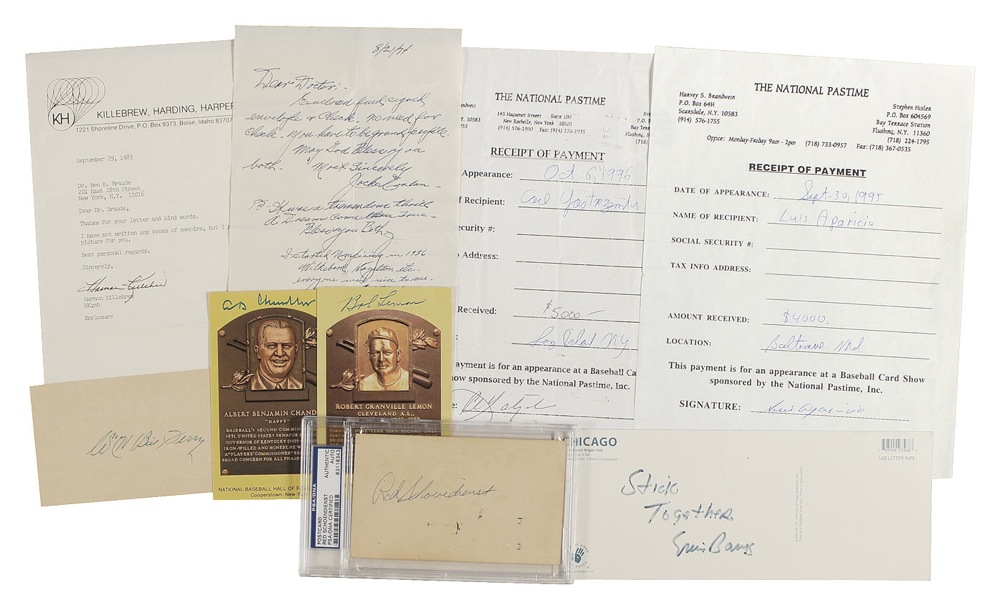 KH
KILLEBREW, HARDING, HARPER
1221 Shoreline Drive, P.O. Box 9373, Boise, Idaho 83707
September 29, 1983
Dr. Ben B. Braude
201 East 28th Street
New York, N.Y. 10016
Dear Dr. Braude,
Thanks for your letter and kind words.
I have not written any books of memoirs, but I
picture for you.
Best personal regards.
Sincerely,
Harmon Killebrew
Harmon Killebrew
HK;nb
Enclosure
8/21/74
Dear Doctor:-
Enclosed find signed
envelope & Check. No need for
Check. You have to be
May God Bless you
both.
Most Sincerely
Jocko Conlan
a tremendous thrill
a Dream Come true
Bless you Both
I started in 1936
everyone was nice to me.
THE NATIONAL PASTIME
145 Huguenot Street Suite 100
New Rochelle, New York 10801
RECEIPT OF PAYMENT
Appearance: Oct 6, 1996
f Recipient: Carl Yastrzemski
ecurity #:
o Address:
Received: $5000 -
Long Island NY
ayment is for an appearance at a Baseball Ca
how sponsored by the National Pastime, Inc.
THE NATIONAL PASTIME
Harvey S. Brandwein
P.O. Box 64H
Scarsdale, N.Y. 10583
(914) 576-1755
Stephen Hisler
P.O. Box 604569
Bay Terrace Station
Flushing, N.Y. 11360
(718) 224-1795
Office: Monday-Friday 9am - 2pm (718) 733-0957 Fax: (718) 367-0535
RECEIPT OF PAYMENT
DATE OF APPEARANCE: Sept. 30, 1995
NAME OF RECIPIENT: Luis Aparicio
SOCIAL SECURITY #:
TAX INFO ADDRESS:
AMOUNT RECEIVED: $4000.
LOCATION: Baltimore Md
This payment is for an appearance at a Baseball Card Show
sponsored by the National Pastime, Inc.
SIGNATURE: Luis Aparicio
A B Chandler
ALBERT BENJAMIN CHAND
"HAPPY"
BASEBALL'S SECOND COMMIS
NATIONAL BASEBALL HALL OF
Cooperstown, New York
Bob Lemon
ROBERT GRANVILLE LEMON
CLEVELAND A.L.,
Bill Terry
PSA/DNA
POSTCARD
RED SCHOENDIENST
PSA/DNA CERTIFIED
AUTHENTIC
AUTO
83318343
Red Schoendienst
CHICAGO
USE LETTER RATE
Stick
Together
Ernie Banks